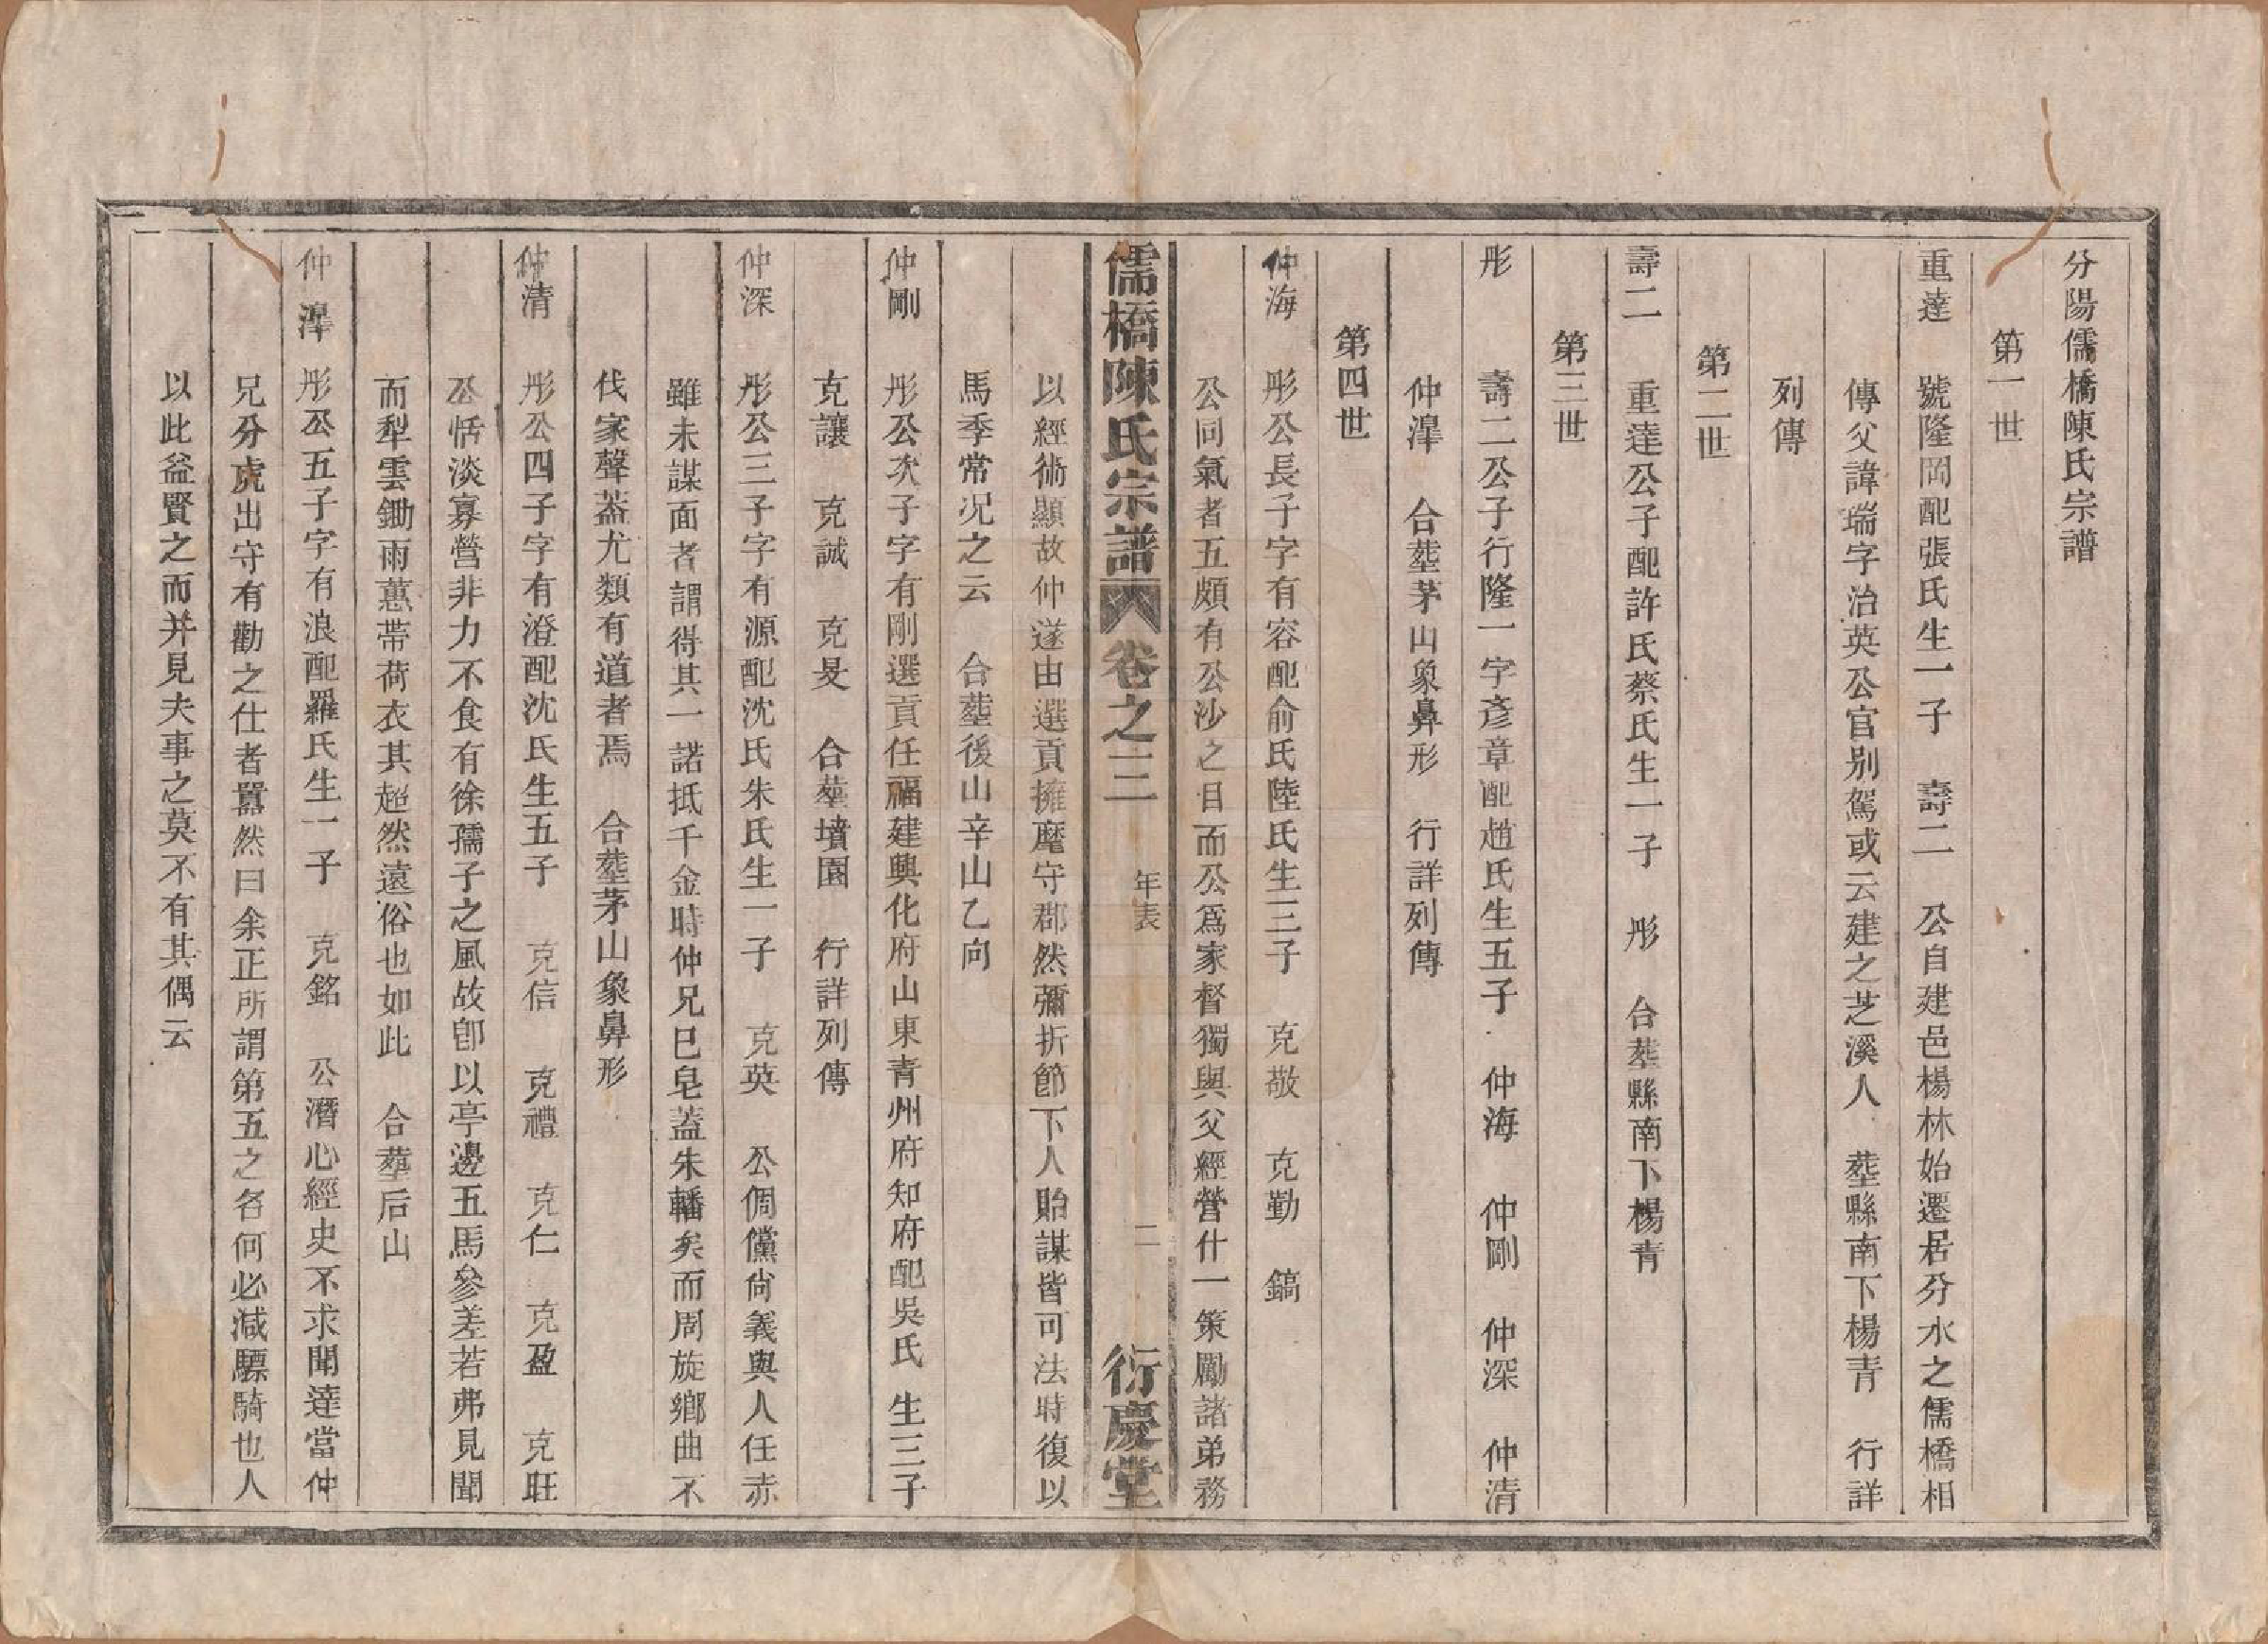 分陽儒橋陳氏宗譜
第一世
重達 號隆岡配張氏生一子 壽二 公自建邑楊林始遷居分水之儒橋相
傳父諱瑞字治英公官别駕或云建之芝溪人 塟縣南下楊青 行詳
列傳
第二世
壽二 重達公子配許氏蔡氏生一子 彤 合塟縣南下楊青
第三世
彤 壽二公子行隆一字彥章配趙氏生五子 仲海 仲剛 仲深 仲清
仲滜 合塟茅山象鼻形 行詳列傳
第四世
仲海 彤公長子字有容配俞氏陸氏生三子 克敬 克勤 鎬
公同氣者五頗有公沙之目而公爲家督獨與父經營什一策勵諸弟務
儒橋陳氏宗譜 卷之三 年表 二 衍慶堂
以經術顯故仲遂由選貢擁麾守郡然彌折節下人貽謀皆可法時復以
馬季常况之云 合塟後山辛山乙向
仲剛 彤公次子字有剛選貢任福建興化府山東青州府知府配吳氏 生三子
克讓 克誠 克旻 合塟墳園 行詳列傳
仲深 彤公三子字有源配沈氏朱氏生一子 克英 公倜儻尙義與人任赤
雖未謀面者謂得其一諾抵千金時仲兄巳皂蓋朱轓矣而周旋鄉曲不
伐家聲葢尤類有道者焉 合塟茅山象鼻形
仲清 彤公四子字有澄配沈氏生五子 克信 克禮 克仁 克盈 克旺
公恬淡寡營非力不食有徐孺子之風故卽以亭邊五馬參差若弗見聞
而犁雲鋤雨蕙帶荷衣其超然遠俗也如此 合塟后山
仲滜 彤公五子字有浪配羅氏生一子 克銘 公潛心經史不求聞達當仲
兄分虎出守有勸之仕者囂然曰余正所謂第五之名何必减驃騎也人
以此益賢之而并見夫事之莫不有其偶云